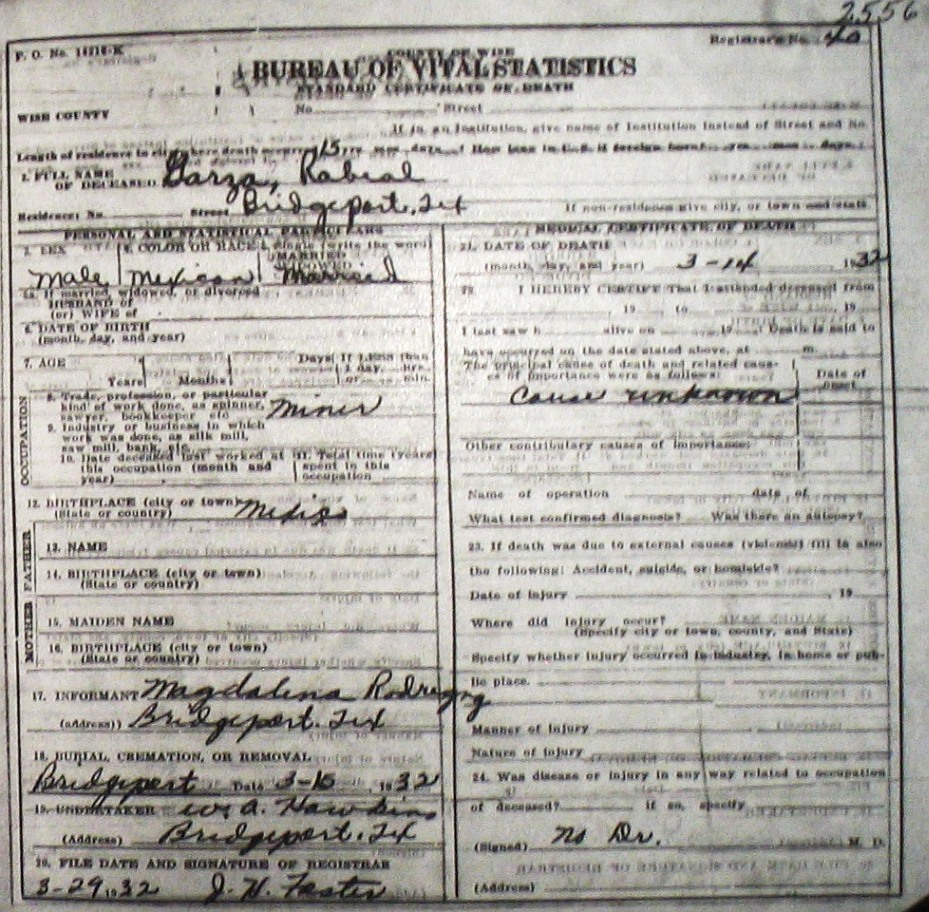 2556
P. O. No. Registrar's No. 40
COUNTY OF WISE
BUREAU OF VITAL STATISTICS
STANDARD CERTIFICATE OF DEATH
WISE COUNTY
No. Street
If in an Institution, give name of Institution instead of Street and No.
Length of residence in city where death occurred 15 yrs. mos. days. How long in U.S. if foreign born? yrs. mos. days.
1. FULL NAME OF DECEASED Garza, Rabial
Residence: No. Street Bridgeport, Tex
If non-residence give city, or town and state
PERSONAL AND STATISTICAL PARTICULARS
3. SEX 4. COLOR OR RACE 5. Single (write the word)
MARRIED
WIDOWED
Male Mexican Married
5a. If married, widowed, or divorced
HUSBAND of
(or) WIFE of
6. DATE OF BIRTH
(month, day, and year)
7. AGE Days If LESS than
1 day, hrs.
Years Months or min.
OCCUPATION
8. Trade, profession, or particular
kind of work done, as spinner, Miner
sawyer, bookkeeper etc
9. Industry or business in which
work was done, as silk mill,
saw mill, bank, etc.
10. Date deceased last worked at 11. Total time (years)
this occupation (month and spent in this
year) occupation
12. BIRTHPLACE (city or town)
(State or country) Mexico
FATHER
13. NAME
14. BIRTHPLACE (city or town)
(State or country)
MOTHER
15. MAIDEN NAME
16. BIRTHPLACE (city or town)
(State or country)
17. INFORMANT Magdalina
(address) Bridgeport. Tex
18. BURIAL, CREMATION, OR REMOVAL
Bridgeport Date 3-15 1932
19. UNDERTAKER W. A. Hawkins
(Address) Bridgeport. Tex
20. FILE DATE AND SIGNATURE OF REGISTRAR
3-29 1932 J. H. Foster
MEDICAL CERTIFICATE OF DEATH
21. DATE OF DEATH
(month, day, and year) 3-14 1932
22. I HEREBY CERTIFY That I attended deceased from
, 19 to , 19
I last saw h alive on 19 Death is said to
have occurred on the date stated above, at m.
The principal cause of death and related causes of importance were as follows: Date of onset
Cause unknown
Other contributory causes of importance:
Name of operation date of
What test confirmed diagnosis? Was there an autopsy?
23. If death was due to external causes (violence) fill in also
the following: Accident, suicide, or homicide?
Date of injury , 19
Where did injury occur?
(Specify city or town, county, and State)
Specify whether injury occurred in industry, in home or public place.
Manner of injury
Nature of injury
24. Was disease or injury in any way related to occupation
of deceased? if so, specify
(Signed) No Dr. M. D.
(Address)